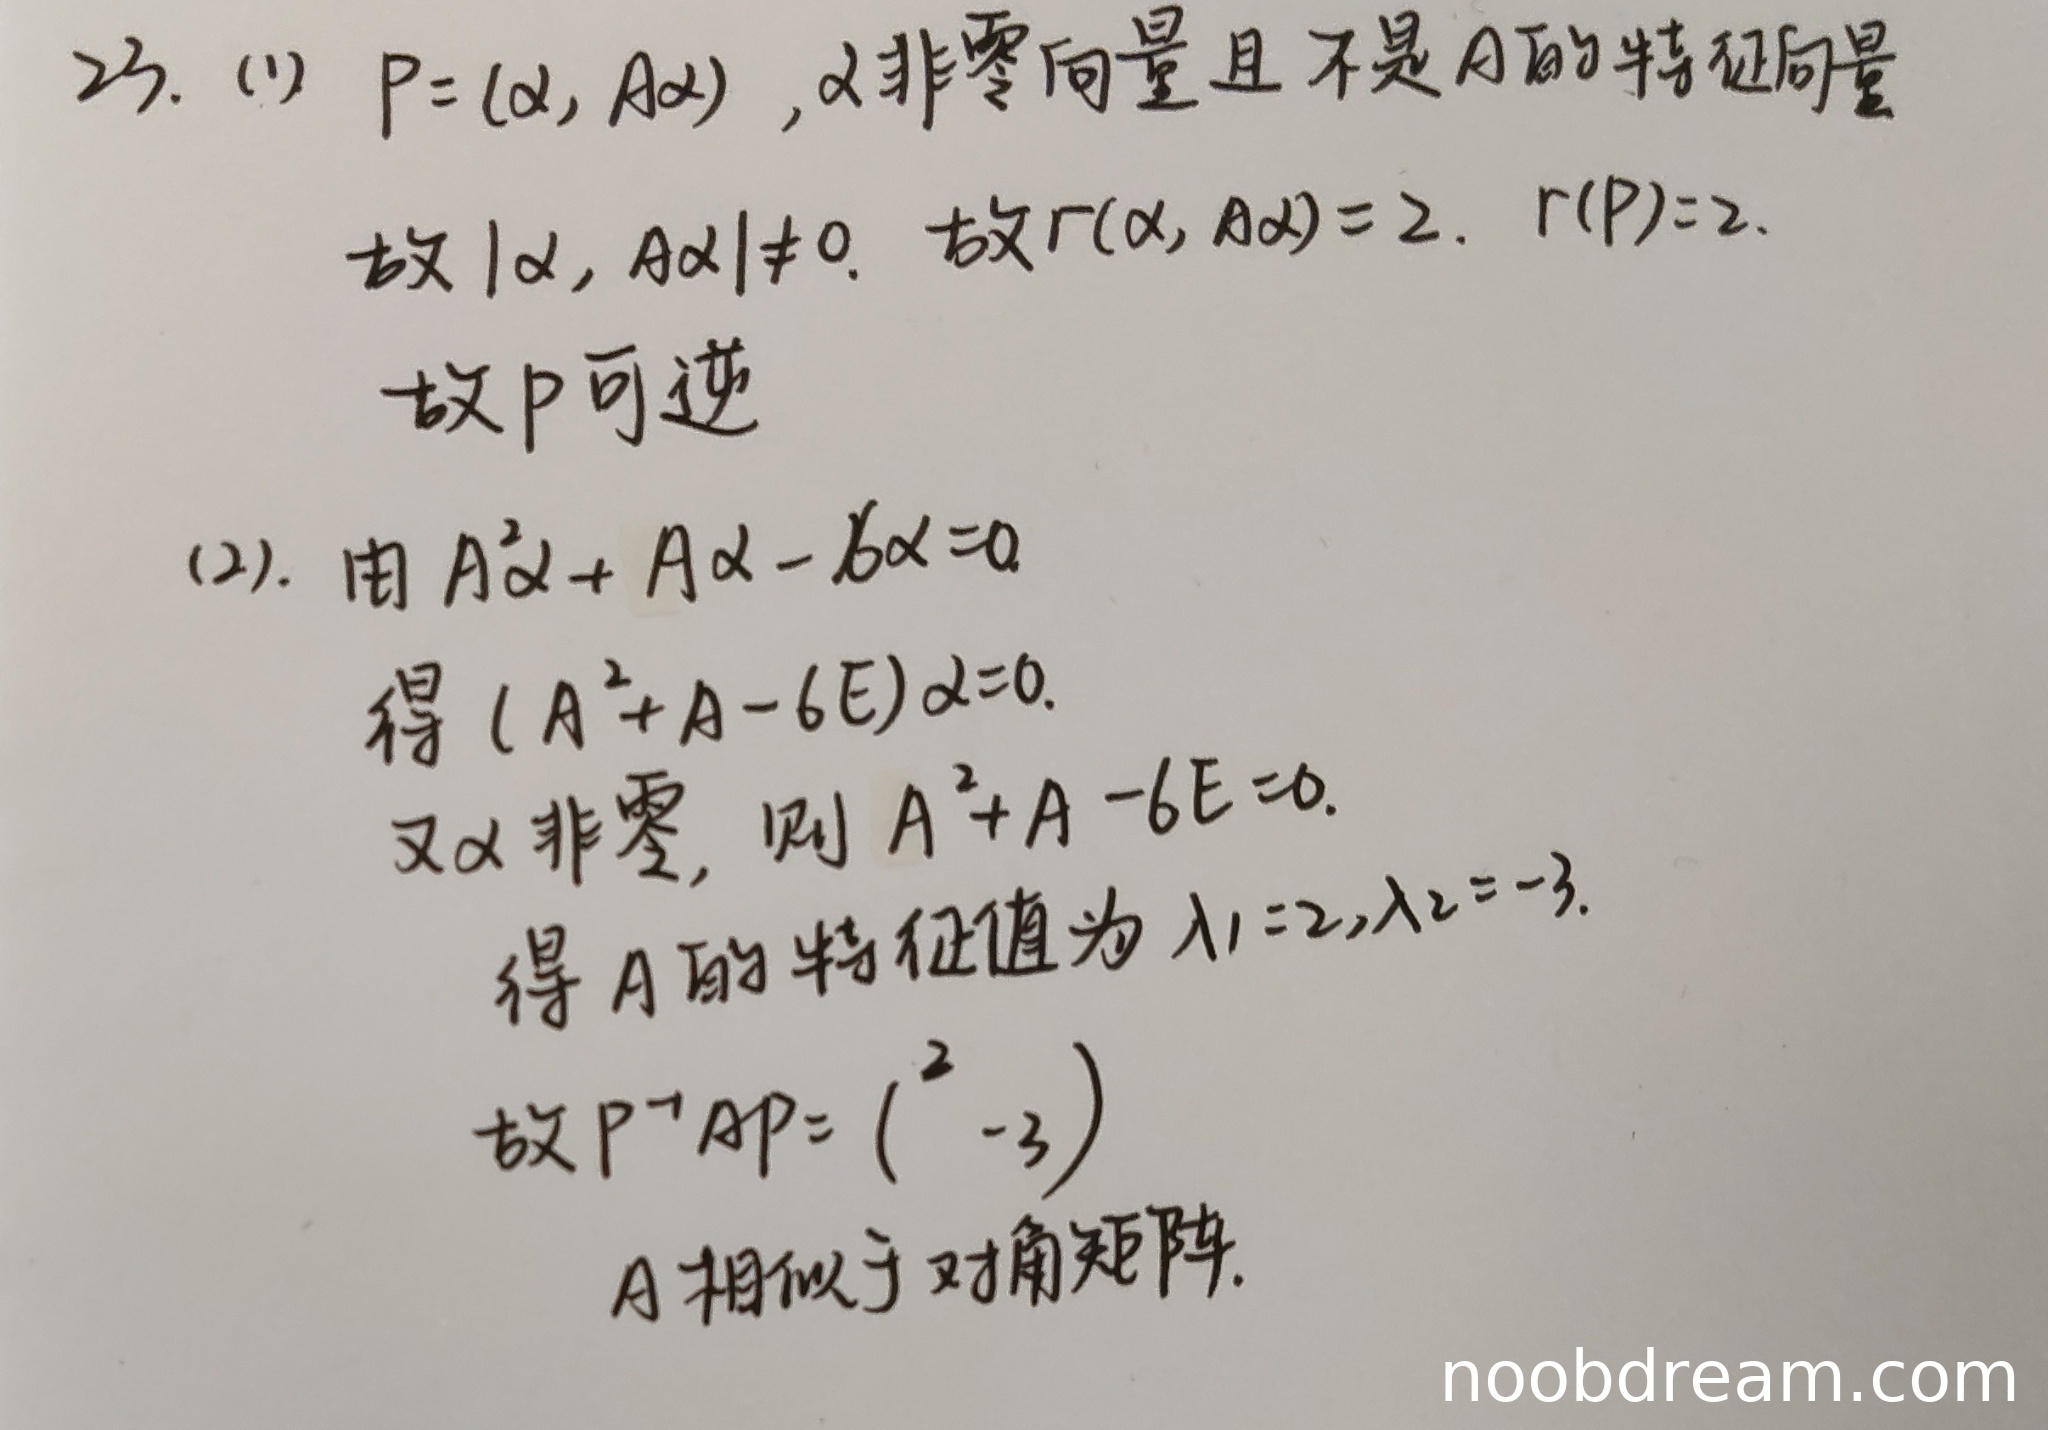 23. (1) P=(α, Aα) ,α非零向量且不是A的特征向量
故|α, Aα|≠0. 故r(α, Aα)=2. r(P)=2.
故P可逆
(2). 由A²α+Aα-6α=0.
得(A²+A-6E)α=0.
又α非零, 则A²+A-6E=0.
得A的特征值为λ1=2,λ2=-3.
故P⁻¹AP=(2 -3)
A相似于对角矩阵.
noobdream.com